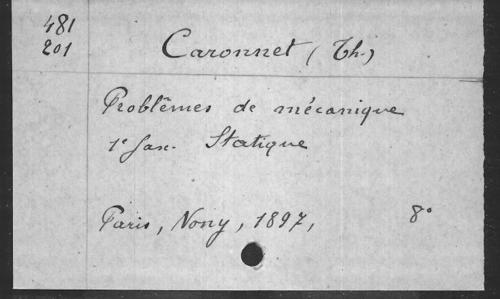 481
201
Caronnet (Th.)
Problèmes de mécanique
1e fasc. Statique
Paris, Nony, 1897, 8°